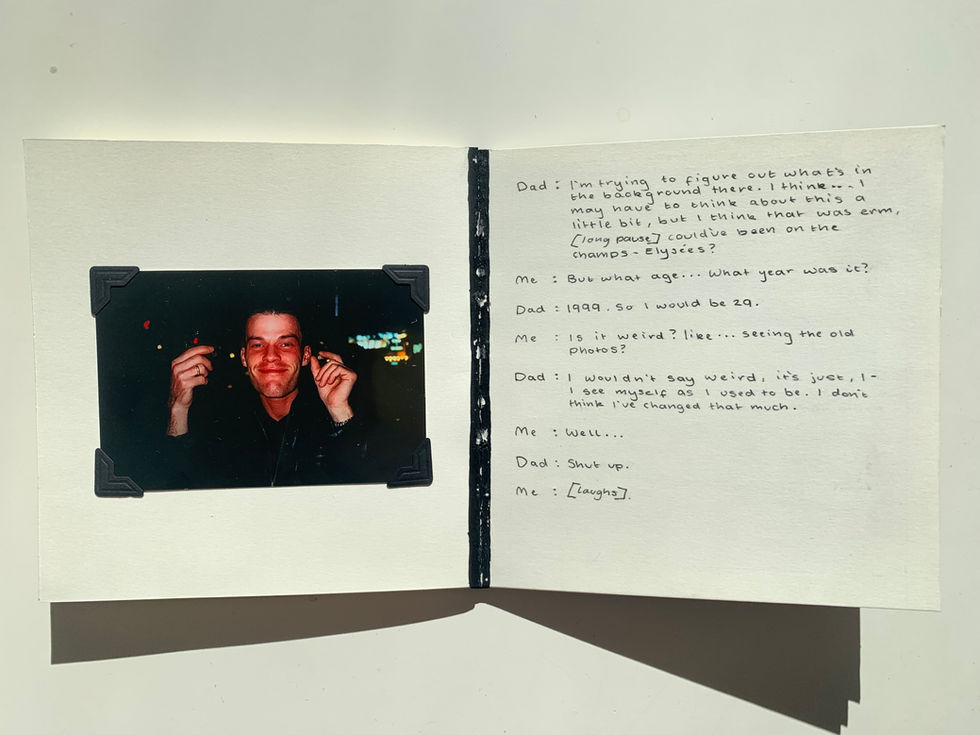 Dad : I'm trying to figure out what's in
the background there. I think... I
may have to think about this a
little bit, but I think that was erm,
[long pause] could've been on the
champs-Elysées?
Me : But what age... what year was it?
Dad : 1999. So I would be 29.
Me : Is it weird? like... seeing the old
photos?
Dad : I wouldn't say weird, it's just, I-
I see myself as I used to be. I don't
think I've changed that much.
Me : Well...
Dad : Shut up.
Me : [laughs].